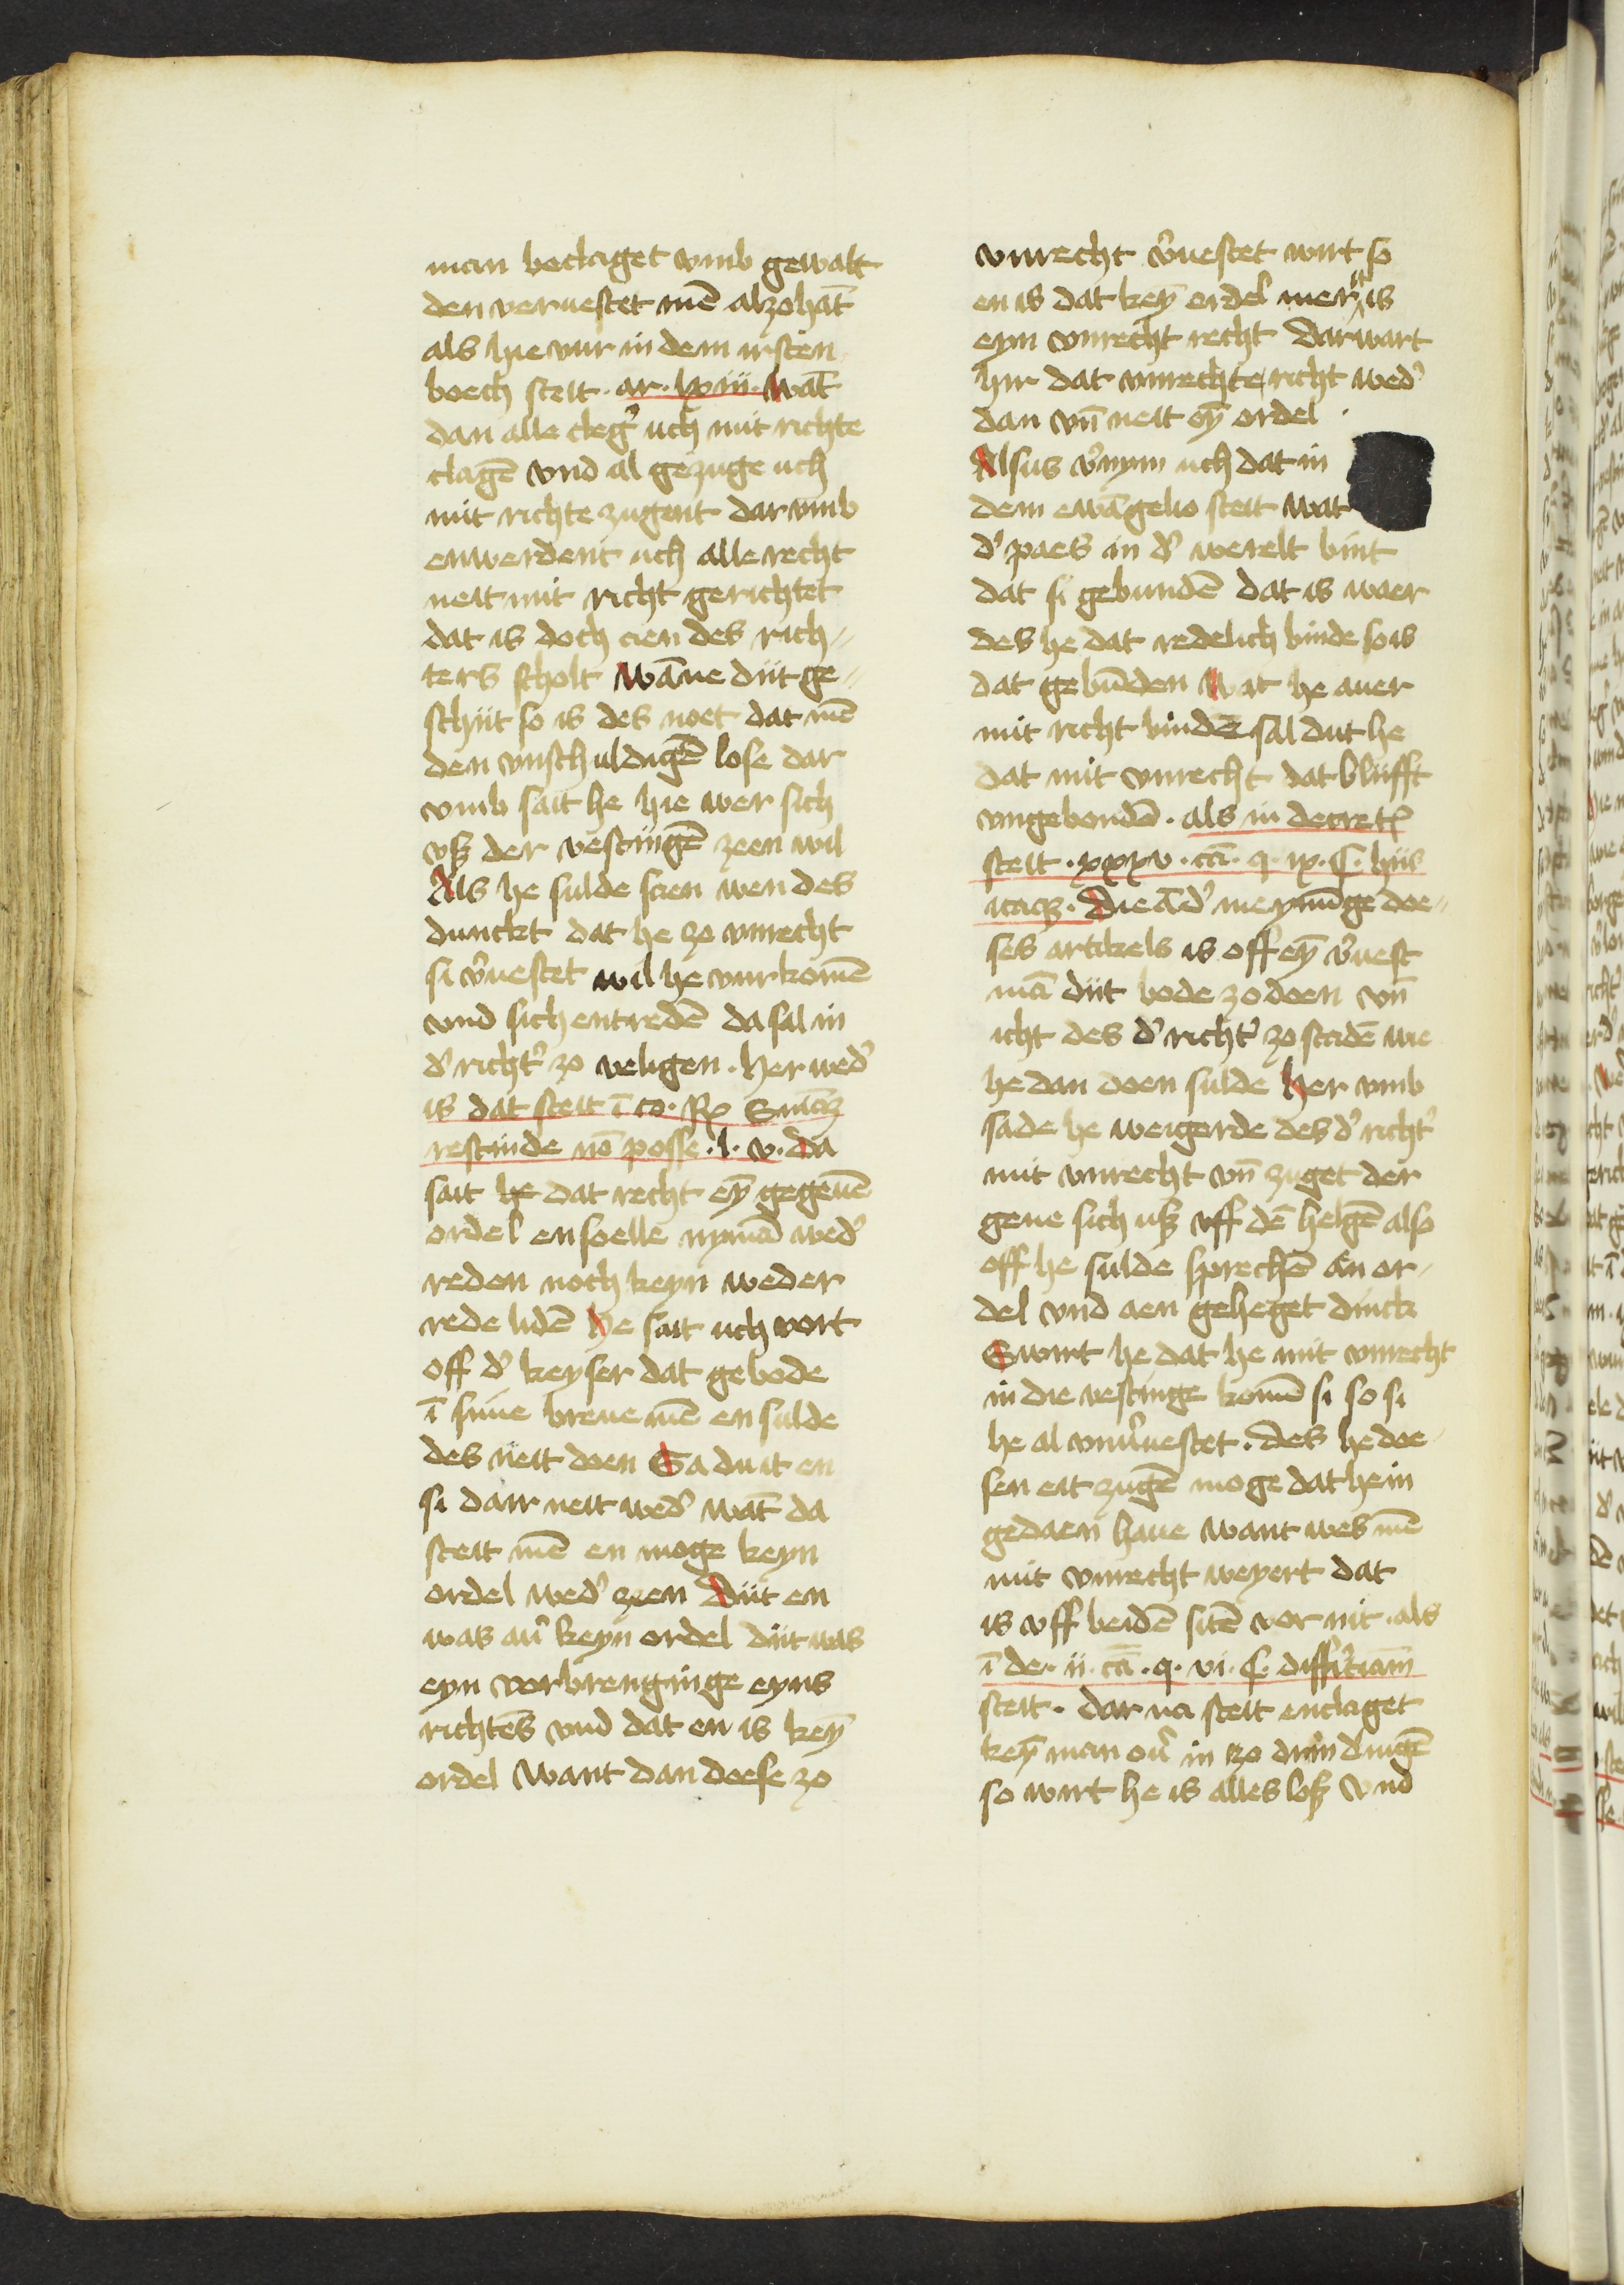 man beclaget vmb gewalt
den veruestet mē alzohāt
als hie vur in dem irsten
boech steit · ar · lxiii · wāt
dan alle cleg̕ uch mit richte
clagē vnd al gezuge uch
mit richte zugent dar vmb
enwerdent uch alle recht
neit mit richt gerichtet
dat is doch eien des rich-
ters scholt wāne düt ge-
schiit so is des noet dat mē
den vnschuldigē lose dar
vmb sait he hie wer sich
vß der vestingē zeen wil
Als he sulde scien wen des
dunckt dat he zo vnrecht
si v̕uestet wil he vurkomē
vnd sich entredē da sal in
d̕ richt̕ zo veligen · her wed̕
is dat steit ī co ·
rescinde nō posse · l · v · da
sait he dat recht eȳ gegeuē
ordel ensoelle nymād wed̕
reden noch keyn weder
rede lidē he sait uch vort
off d̕ keyser dat gebode
ī sine breue mē en sulde
des neit doen Sa du it en
si dair neit wed̕ wāt da
steit mē en moge keyn
ordel wed̕ zeen düt en
was au̕ keyn ordel düt was
eyn vorbrenginge eyns
richtēs vnd dat en is keȳ
ordel want dan doese zo
vnrecht v̕uestet wirt so
en is dat keȳ ordel mer is
eyn vnrecht recht dar wart
hir dat vnrechte richt wed̕
dan vn̄ neit eȳ ordel ·
Alsus v̕nym uch dat in
dem ewāgelio steit wat
d̕ paes in d̕ werelt bint
dat si gebundē dat is waer
des he dat redelich binde so is
dat gebūden wat he auer
mit richt bindē sal dut he
dat mit vnrecht dat bliifft
vngebondē · als in decret̕
steit · xxxv · cā · q · ix · hiis
itaq̕ · Die ād̕ meynūge doe-
ses artikels is off eȳ v̕uest
mā düt bode zo doen vn̄
icht des d̕ richt̕ zo stadē we
he dan doen sulde her vmb
sade he weigerde des d̕ richt̕
mit vnrecht vn̄ zuget der
gene sich uß vff dē helgē also
off he sulde sprechē an or-
del vnd aen geheget dinck
Swirt he dat he mit vnrecht
in die vestinge komē si so si
he al vnu̕uestet · des he doe-
sen eit zugē moge dat he in
gedaen haue want wes mē
mit vnrecht weyert dat
is vff beidē sitē vor nit · als
ī de · ii · cā · q · vi · diffi̕tiam
steit · dar na steit enclaget
keȳ man ou̕ in zo drin dingē
so wirt he is alles loß vnd